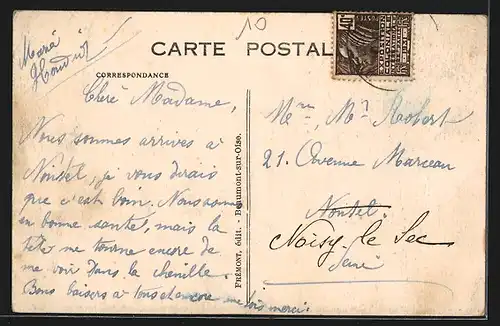 10
CARTE POSTALE
CORRESPONDANCE
Chère Madame,
Nous sommes arrives a
Nointel, je vous dirais
que c'est loin. Nous sommes
en bonne santé, mais la
tète me tourne encore de
me voir dans la chenille.
Bons baisers a tous et encore une fois merci.
FRÉMONT, édit. - Beaumont-sur-Oise.
Mme, Mr Robert
21. Avenue Marceau
Nointel.
Noisy-le Sec
Seine
POSTES